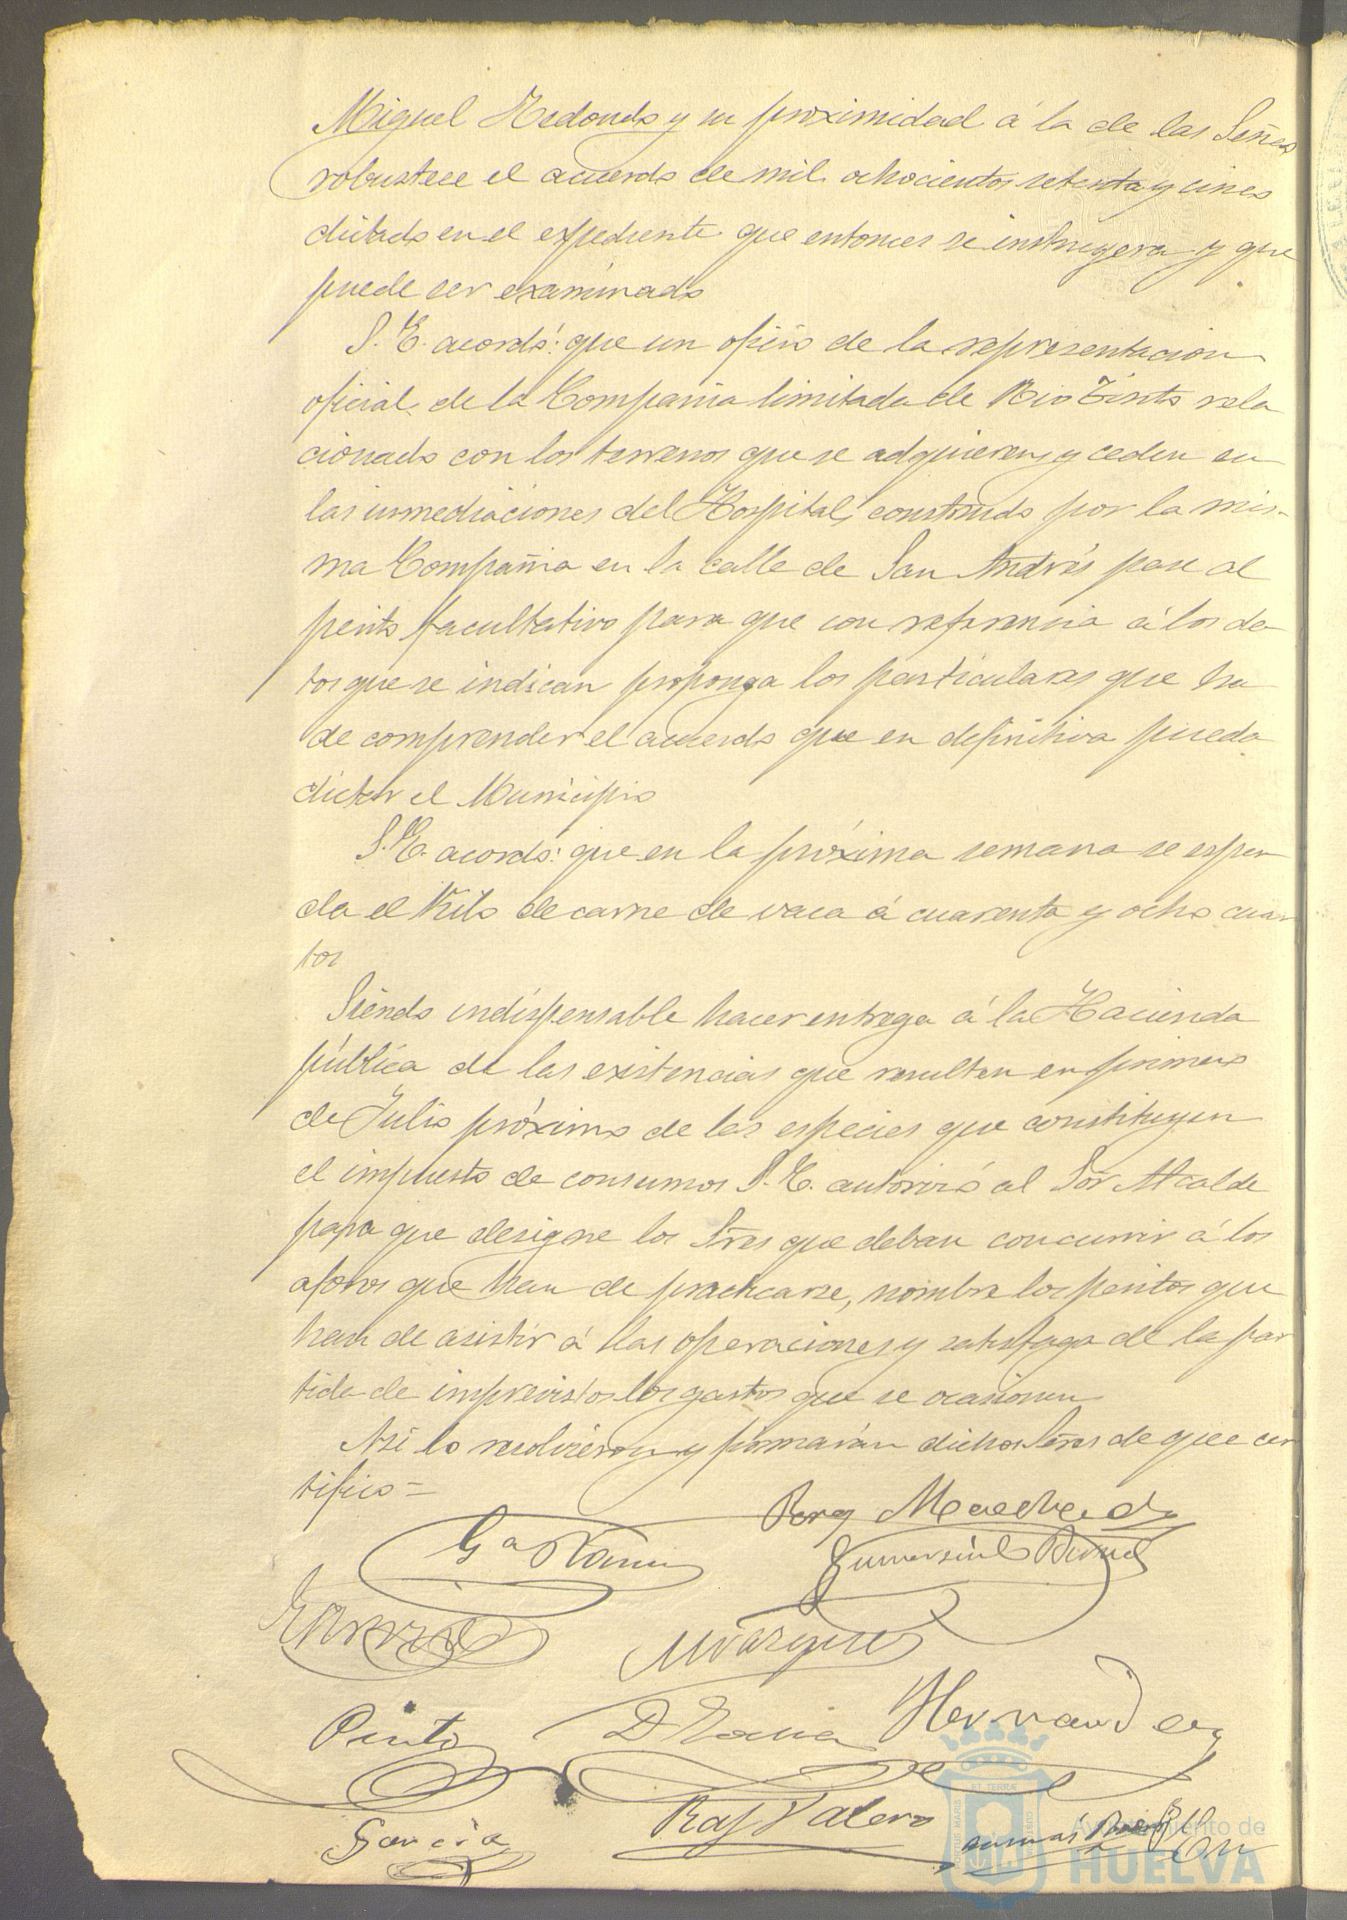 Miguel Redondo y su proximidad á la de las Señas
robustece el acuerdo de mil ochocientos setenta y cinco
dictado en el expediente que entonces se instruyera y que
puede ser examinado
S. E. acordó: que un oficio de la representacion
oficial de la Compañia limitada de Rio Tinto rela
cionado con los terrenos que se adquieren y ceden en
las inmediaciones del Hospital, construido por la mis-
ma Compañia en la calle de San Andrés pase al
perito facultativo para que con referencia á los da
tos que se indican proponga los particulares que ha
de comprender el acuerdo que en definitiva pueda
dictar el Municipio
S. E. acordó: que en la próxima semana se espen
da el Kilo de carne de vaca á cuarenta y ocho cuar
tos
Siendo indispensable hacer entrega á la Hacienda
pública de las existencias que resulten en primero
de Julio próximo de las especies que constituyen
el impuesto de consumos S. E. autorizó al Sor Alcalde
para que designe los Sres que deban concurrir á los
aforos que han de practicarse, nombre los peritos que
han de asistir á las operaciones y satisfaga de la par
tida de imprevistos los gastos que se ocasionen
Asi lo resolvieron y firmarán dichos Señores de que cer
tifico =
Machado
Gª Ramos
Gumersindo
M Vazquez
Pinto
Hernandez
Garcia
Raf Valero
PORTUS MARIS ET TERRÆ CUSTODIA
Ayuntamiento de
HUELVA